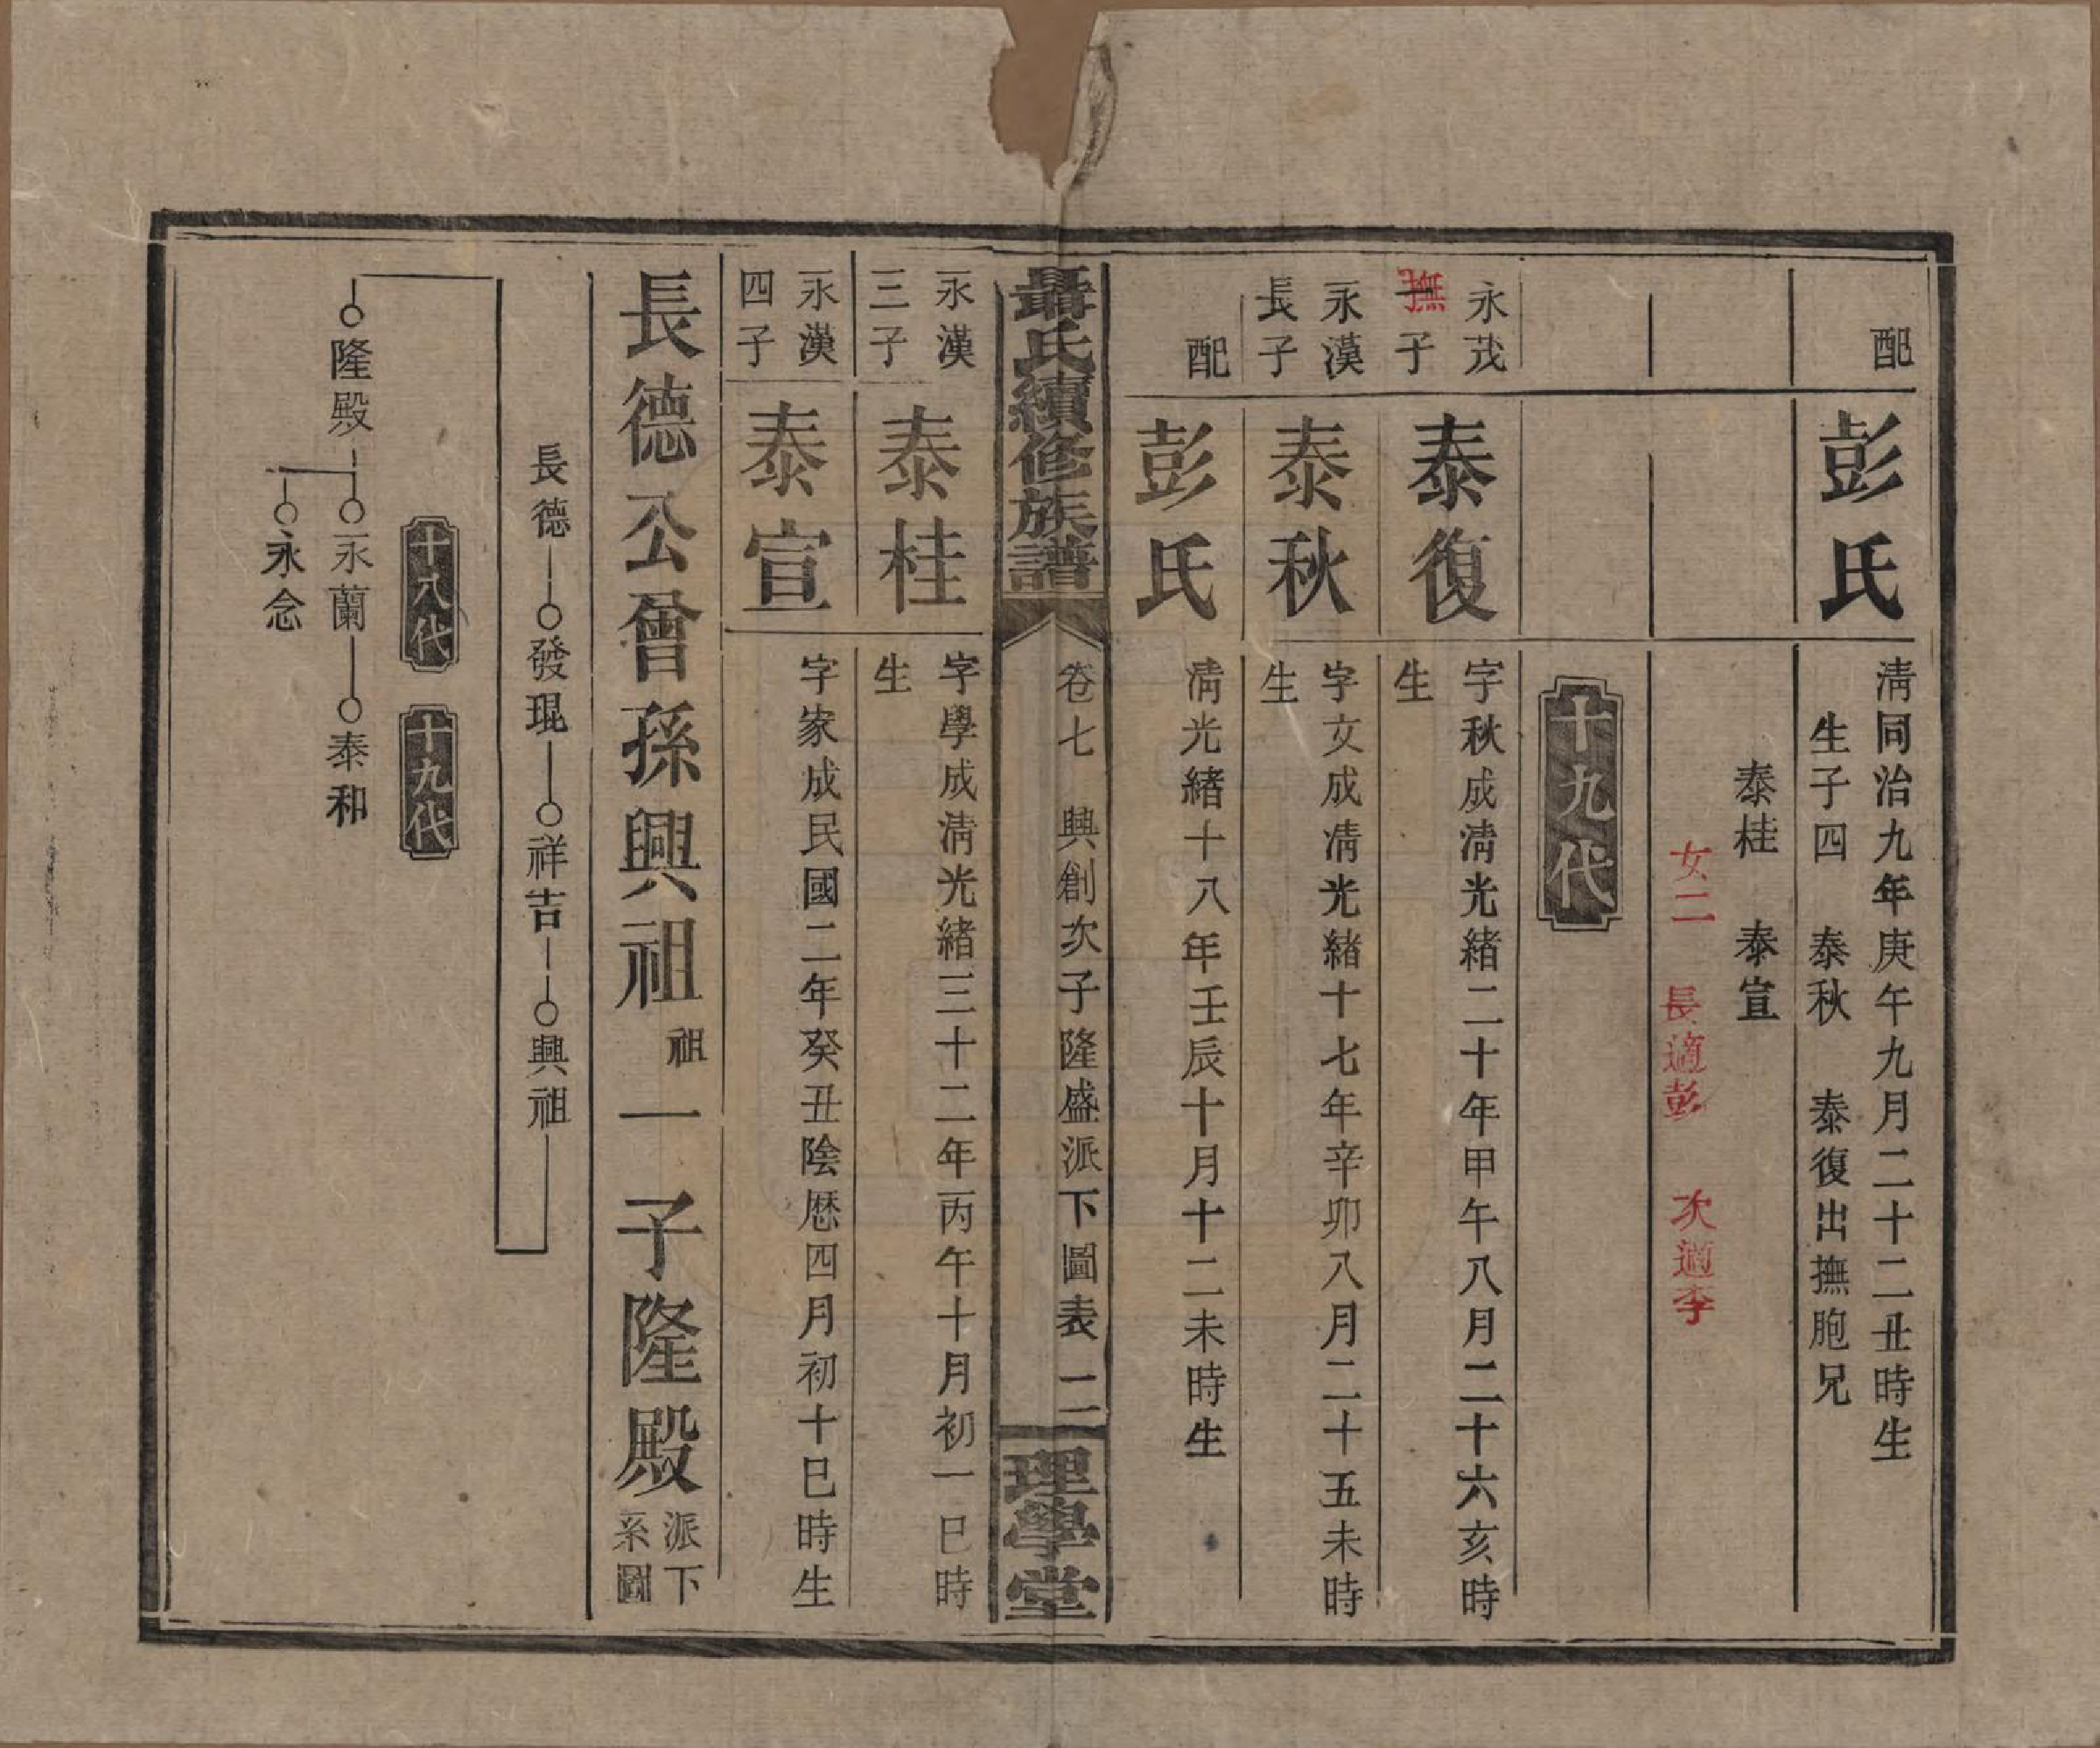 配
彭氏
淸同治九年庚午九月二十二丑時生
生子四　泰秋　泰復出撫胞兄
泰桂　泰宣
女二　長適彭　次適李
十九代
永茂
撫子
泰復
字秋成淸光緒二十年甲午八月二十六亥時
生
永漢
長子
泰秋
字文成淸光緒十七年辛卯八月二十五未時
生
配
彭氏
淸光緒十八年壬辰十月十二未時生
聶氏續修族譜
卷七　興創次子隆盛派下圖表　二
理學堂
永漢
三子
泰桂
字學成淸光緒三十二年丙午十月初一巳時
生
永漢
四子
泰宣
字家成民國二年癸丑陰厯四月初十巳時生
長德公曾孫興祖祖一子隆殿派下
系圖
長德 發琨 祥吉 興祖
十八代　十九代
隆殿 永蘭 泰和
永念